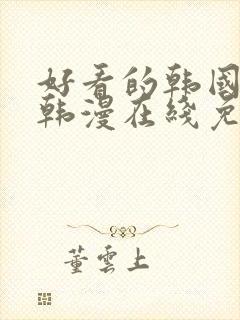 好看的韩国
韩漫在线免
董雲上